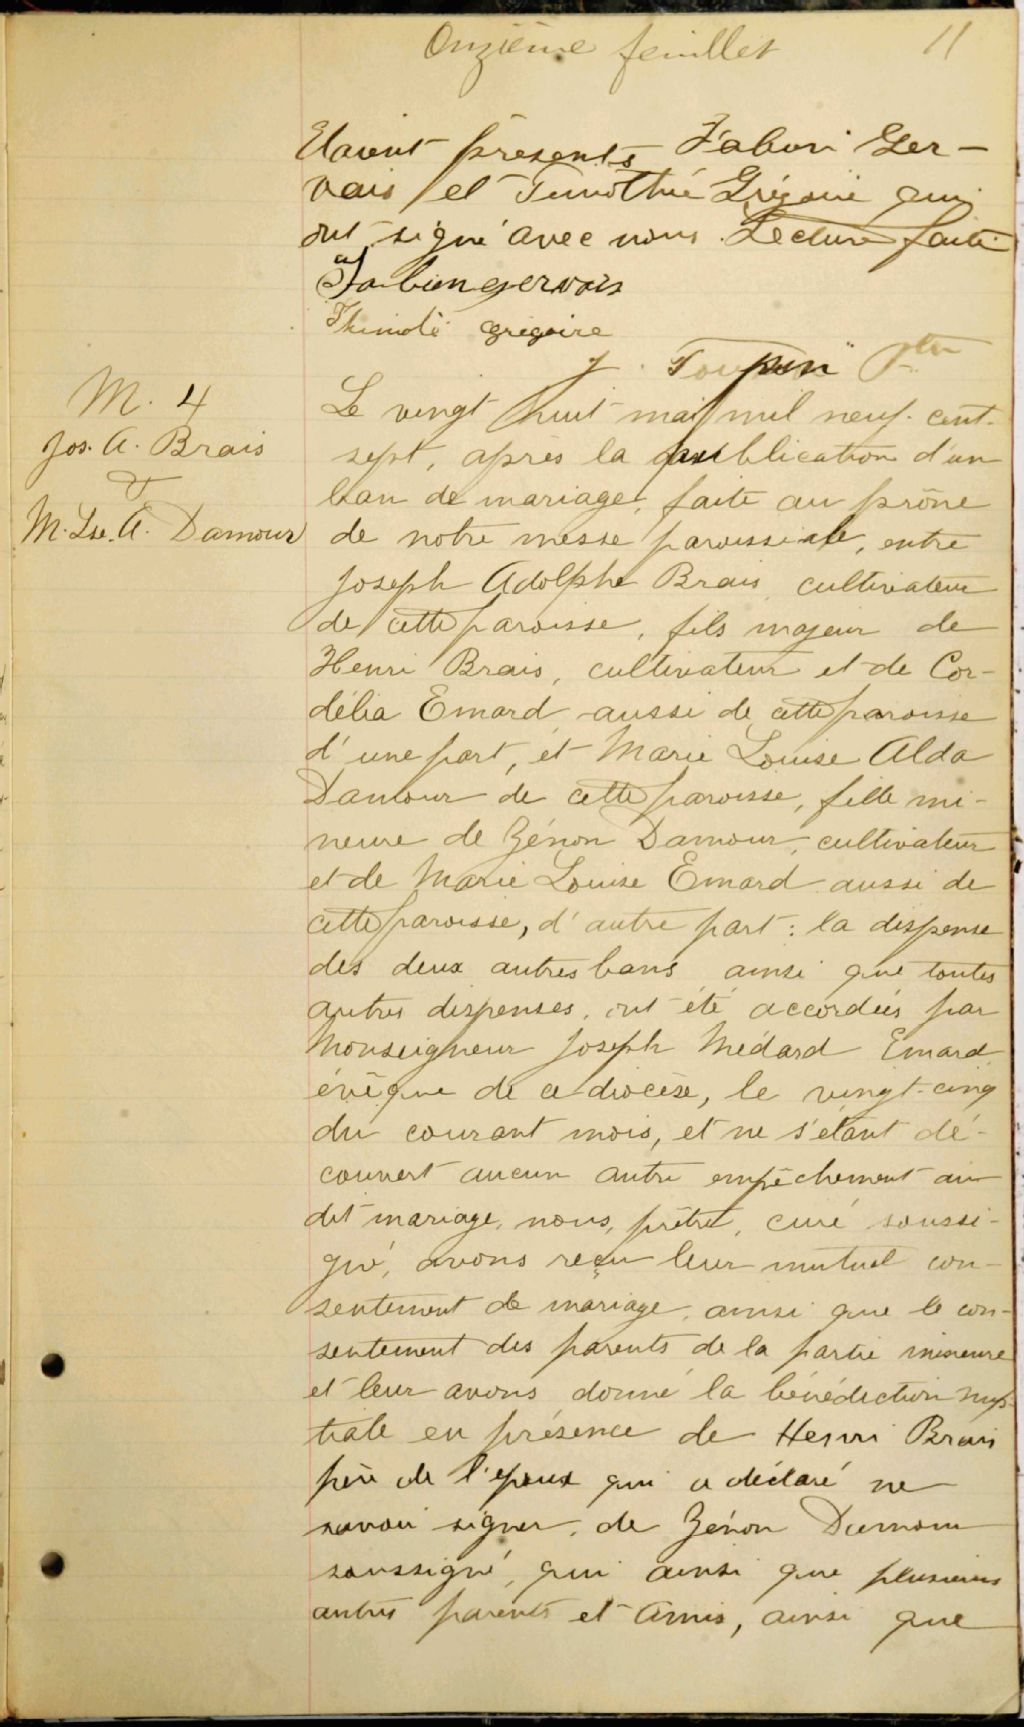 Onzième feuillet 11
Etaient présents Fabien Ger-
vais et Timothé Grégoire qui
ont signé avec nous. Lecture faite.
Fabien gervais
Thimoté grégoire
J. Toupin Ptre
M. 4
Jos. A. Brais
&
M. Lse. A. Damour
Le vingt huit mai mil neuf cent-
sept, après la publication d'un
ban de mariage, faite au prône
de notre messe paroissiale, entre
Joseph Adolphe Brais, cultivateur
de cette paroisse, fils majeur de
Henri Brais, cultivateur et de Cor-
délia Emard aussi de cette paroisse
d'une part, et Marie Louise Alda
Damour de cette paroisse, fille mi-
neure de Zénon Damour, cultivateur
et de Marie Louise Emard aussi de
cette paroisse, d'autre part: la dispense
des deux autres bans ainsi que toutes
autres dispenses, ont été accordées par
Monseigneur Joseph Médard Emard
évêque de ce diocèse, le vingt-cinq
du courant mois, et ne s'étant dé-
couvert aucun autre empêchement au
dit mariage, nous, prêtre, curé soussi-
gné, avons reçu leur mutuel con-
sentement de mariage, ainsi que le con-
sentement des parents de la partie mineure
et leur avons donné la bénédiction nup-
tiale en présence de Henri Brais
père de l'époux qui a déclaré ne
savoir signer, de Zénon Damour
soussigné, qui ainsi que plusieurs
autres parents et amis, ainsi que